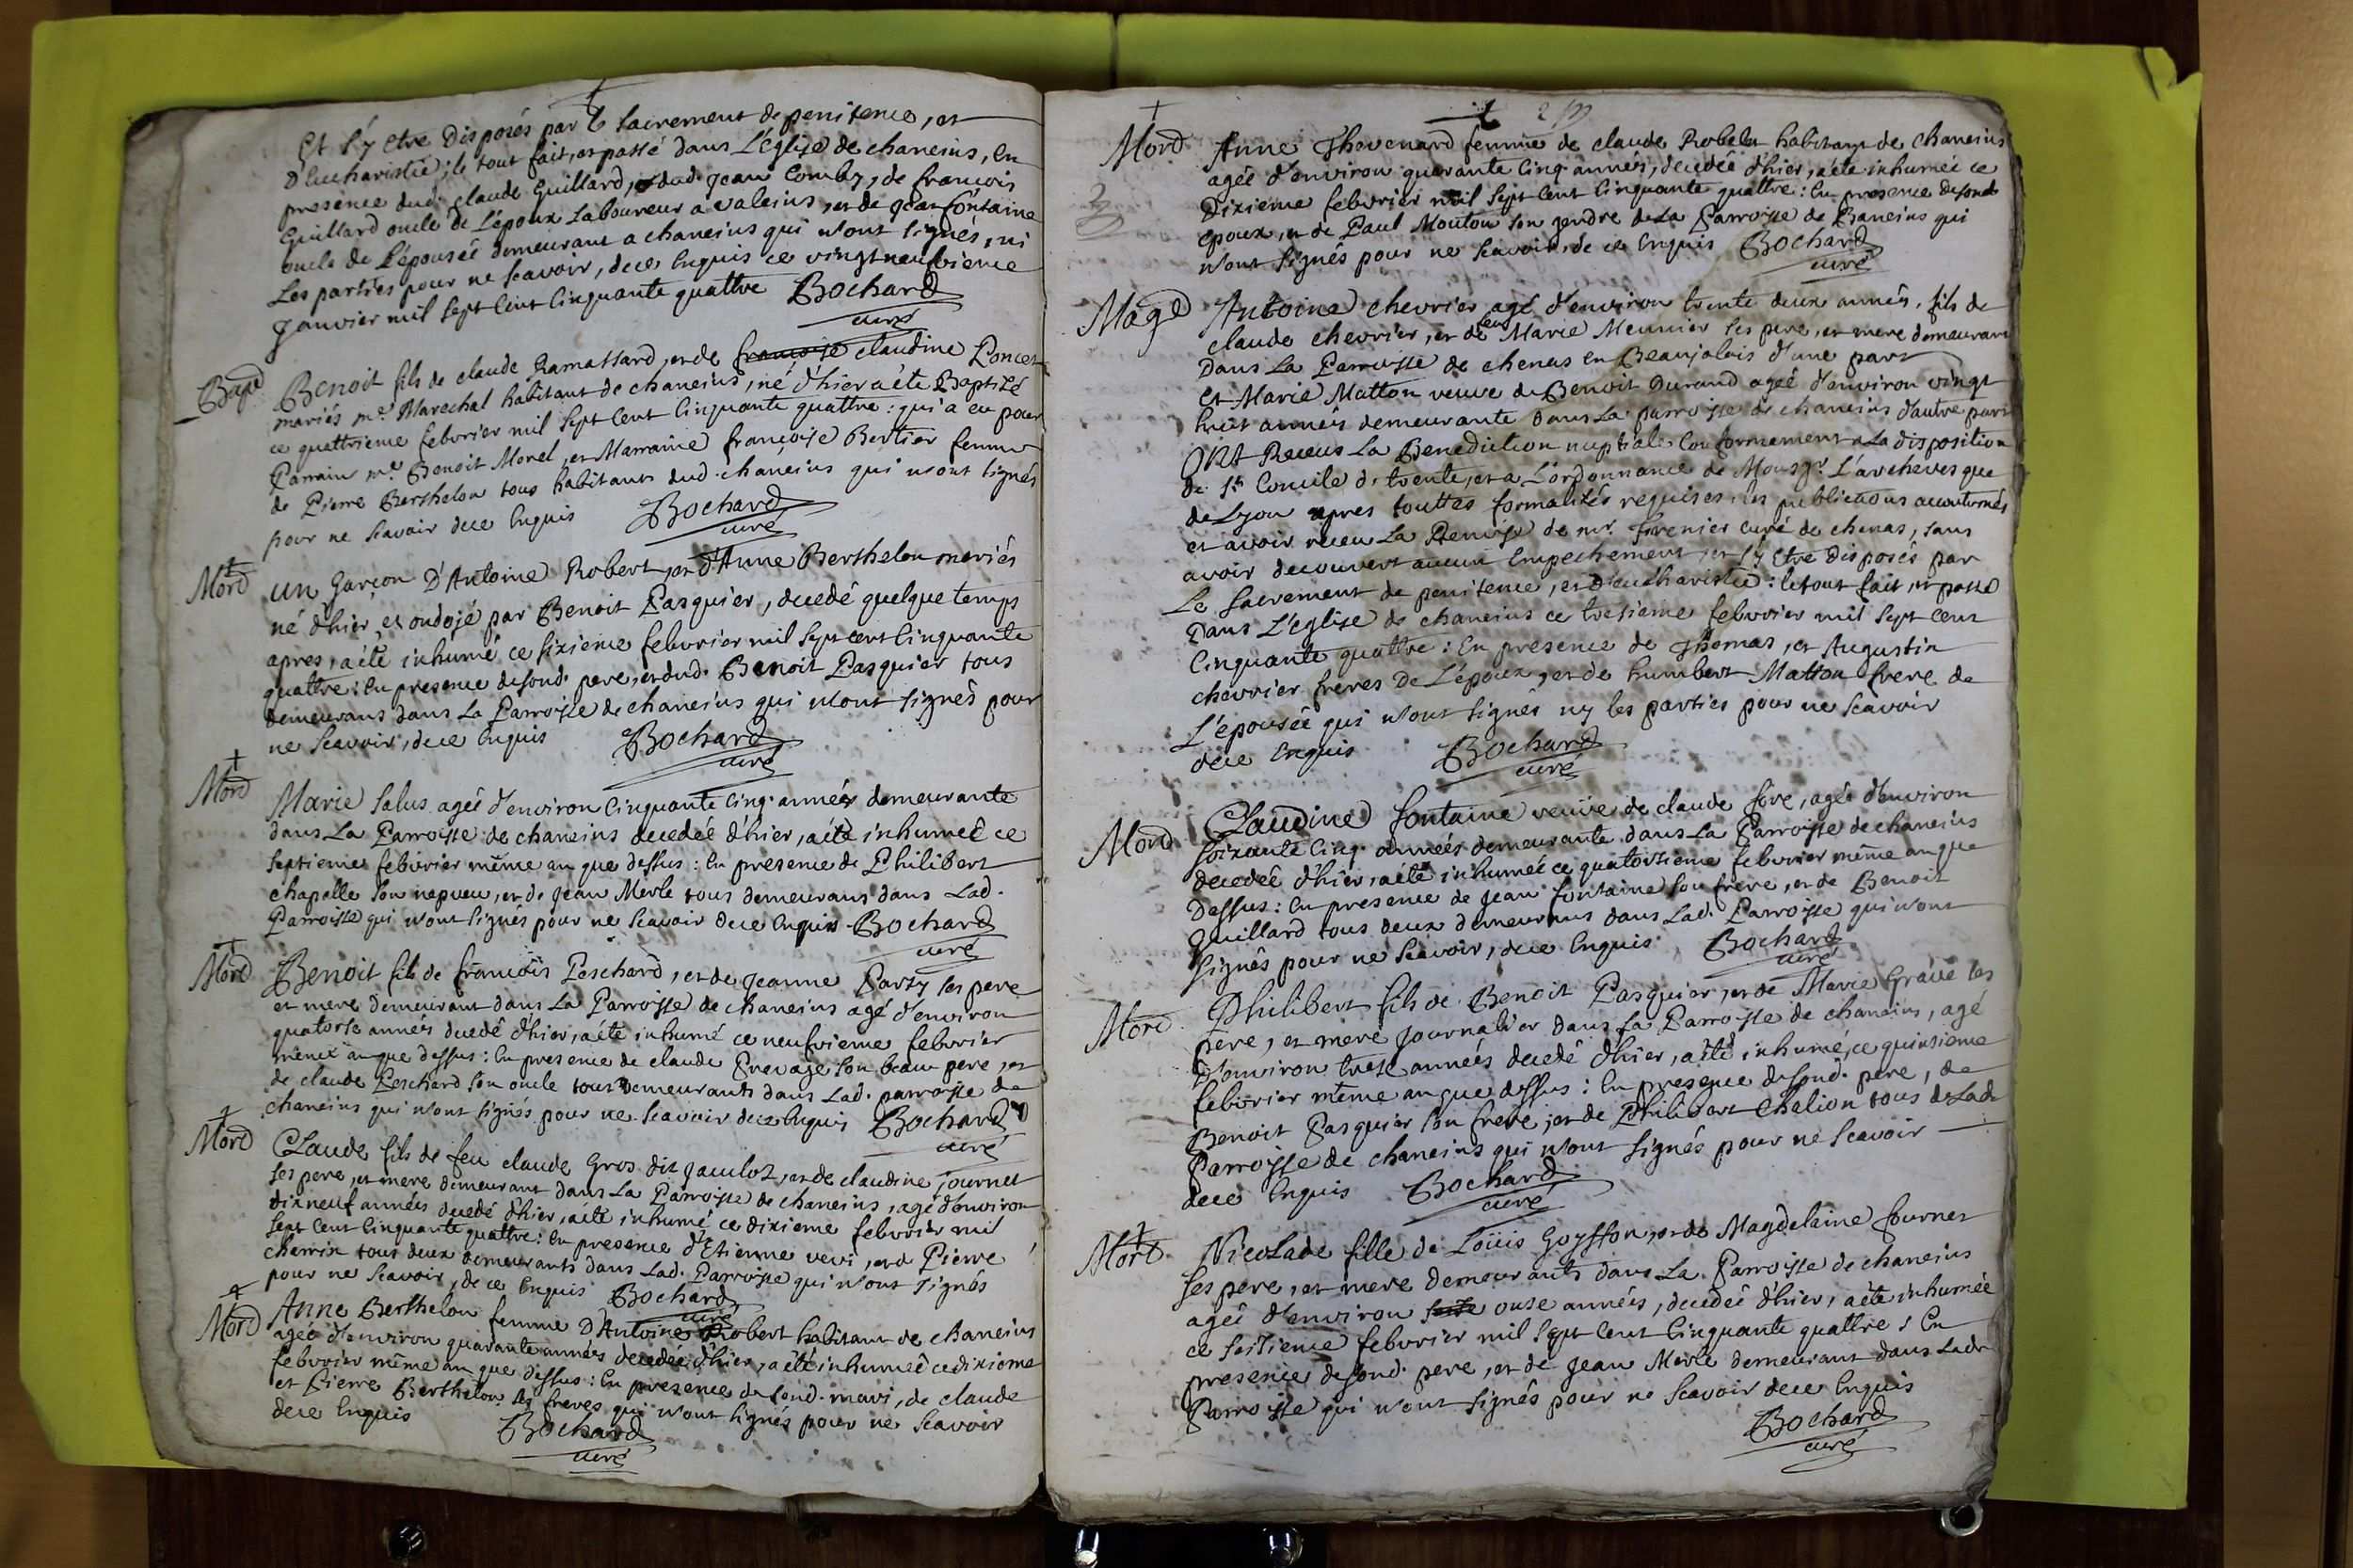 Et s'y etre Disposés par le sacrement de penitence, et
D'Eucharistie; le tout fait, et passé dans L'Eglise de chaneins, en
presence dud. claude Guillard, et dud. Jean Comby, de francois
Guillard oncle de L'époux Laboureur a valeins, et de Jean fontaine
oncle de L'épousée demeurant a chaneins qui n'ont signés, ni
Les parties pour ne scavoir, de ce Enquis ce vingt neufvieme
Janvier mil sept Cent Cinquante quattre Bochard
curé
Bapt Benoit fils de claude Ramassard, et de francoise claudine Poncet
mariés me. Marechal habitant de chaneins, né d'hier a été Baptisé
ce quattrieme febvrier mil sept Cent Cinquante quattre: qui a eu pour
Parrain me. Benoit Morel, et Marraine françoise Bertier femme
de Pierre Berthelon tous habitants dud. chaneins qui n'ont signés
pour ne scavoir de ce Enquis Bochard
curé
Mord un Garçon D'Antoine Robert, et d'Anne Berthelon mariés
né d'hier, et ondojé par Benoit Pasquier, decedé quelque temps
apres, a été inhumé ce sixieme febvrier mil sept cent Cinquante
quattre: En presence de sond. pere, et dud. Benoit Pasquier tous
demeurans dans La Parroisse de chaneins qui n'ont signés pour
ne scavoir, de ce Enquis Bochard
curé
Mord Marie Salus agée d'environ Cinquante Cinq années demeurante
dans La Parroisse de chaneins decedée d'hier, a été inhumée ce
septieme febvrier même an que dessus: En presence de Philibert
chapelle son nepveu, et de Jean Merle tous demeurans dans Lad.
Parroisse qui n'ont signés pour ne scavoir de ce Enquis Bochard
curé
Mord Benoit fils de francois Peschard, et de Jeanne Party ses pere
et mere demeurant dans La Parroisse de chaneins agé d'environ
quatorse années decedé d'hier, a été inhumé ce neufvieme febvrier
même an que dessus: En presence de claude Prevage son beau pere, et
de claude Peschard son oncle tous demeurants dans Lad. parroisse de
chaneins qui n'ont signés pour ne scavoir de ce Enquis Bochard
curé
Mord Claude fils de feu claude Gros dit Jaculot, et de claudine journet
ses pere, et mere demeurant dans La Parroisse de chaneins, agé d'environ
dixneuf années decedé d'hier, a été inhumé ce dixieme febvrier mil
sept Cent Cinquante quattre: En presence d'Etienne veni, et de Pierre
chemin tous deux demeurants dans Lad. Parroisse qui n'ont signés
pour ne scavoir, de ce Enquis Bochard
curé
Mord Anne Berthelon femme D'Antoine Robert habitant de chaneins
agée d'environ quarante années decedée d'hier, a été inhumée ce dixieme
febvrier même an que dessus: En presence de sond. mari, de claude
et Pierre Berthelon ses freres qui n'ont signés pour ne scavoir
de ce Enquis Bochard
curé
Mord Anne Thevenard femme de claude Robelet habitant de chaneins
agée d'environ quarante Cinq années, decedée d'hier, a été inhumée ce
Dixieme febvrier mil sept Cent Cinquante quattre: En presence de sond.
epoux, et de Paul Mouton son gendre de La Parroisse de Baneins qui
n'ont signés pour ne scavoir, de ce Enquis Bochard
curé
Mage Antoine chevrier agé d'environ trente deux années, fils de
claude chevrier, et de feu Marie Meunier ses pere, et mere demeurant
Dans La Parroisse de chenas en Beaujolais d'une part
et Marie Matton veuve de Benoit Durand agée d'environ vingt
huit années demeurante dans La parroisse de chaneins d'autre part
ONt Receus La Benediction nuptiale Conformement a La disposition
de St. Concile de trente, et a L'ordonnance de Monsgr. L'archevesque
de Lyon apres touttes formalités requises, les publications accoutumés
et avoir receu La Remise de mr. Frenier curé de chenas, sans
avoir decouvert aucun Empechement, et s'y etre disposés par
Le sacrement de penitence, et D'eucharistie: le tout fait, et passé
Dans L'Eglise de chaneins ce tresieme febvrier mil sept Cent
Cinquante quattre: En presence de Thomas, et Augustin
chevrier freres De L'époux, et de humbert Matton frere de
L'épousée qui n'ont signés ny les parties pour ne scavoir
de ce Enquis Bochard
curé
Mord Claudine fontaine veuve de claude fore, agée d'environ
soixante Cinq années demeurante dans La Parroisse de chaneins
decedée d'hier, a été inhumée ce quatorsieme febvrier même an que
Dessus: En presence de Jean fontaine son frere, et de Benoit
Guillard tous deux demeurans dans Lad. Parroisse qui n'ont
signés pour ne scavoir, de ce Enquis Bochard
curé
Mord Philibert fils de Benoit Pasquier, et de Marie Grave ses
pere, et mere Journalier dans La Parroisse de chaneins, agé
d'environ trese années decedé d'hier, a été inhumé, ce quinsieme
febvrier même an que dessus: En presence de sond. pere, de
Benoit Pasquier son frere, et de Philibert Chalion tous de Lad.
Parroisse de chaneins qui n'ont signés pour ne scavoir
de ce Enquis Bochard
curé
Mord Nicolade fille de Loüis Goyffon, et de Magdelaine fournet
ses pere, et mere demeurants dans La Parroisse de chaneins
agée d'environ onse années, decedée d'hier, a été inhumée
ce seisieme febvrier mil sept Cent Cinquante quattre: En
presence de sond. pere, et de Jean Merle demeurant dans Lad.
Parroisse qui n'ont signés pour ne scavoir de ce Enquis
Bochard
curé